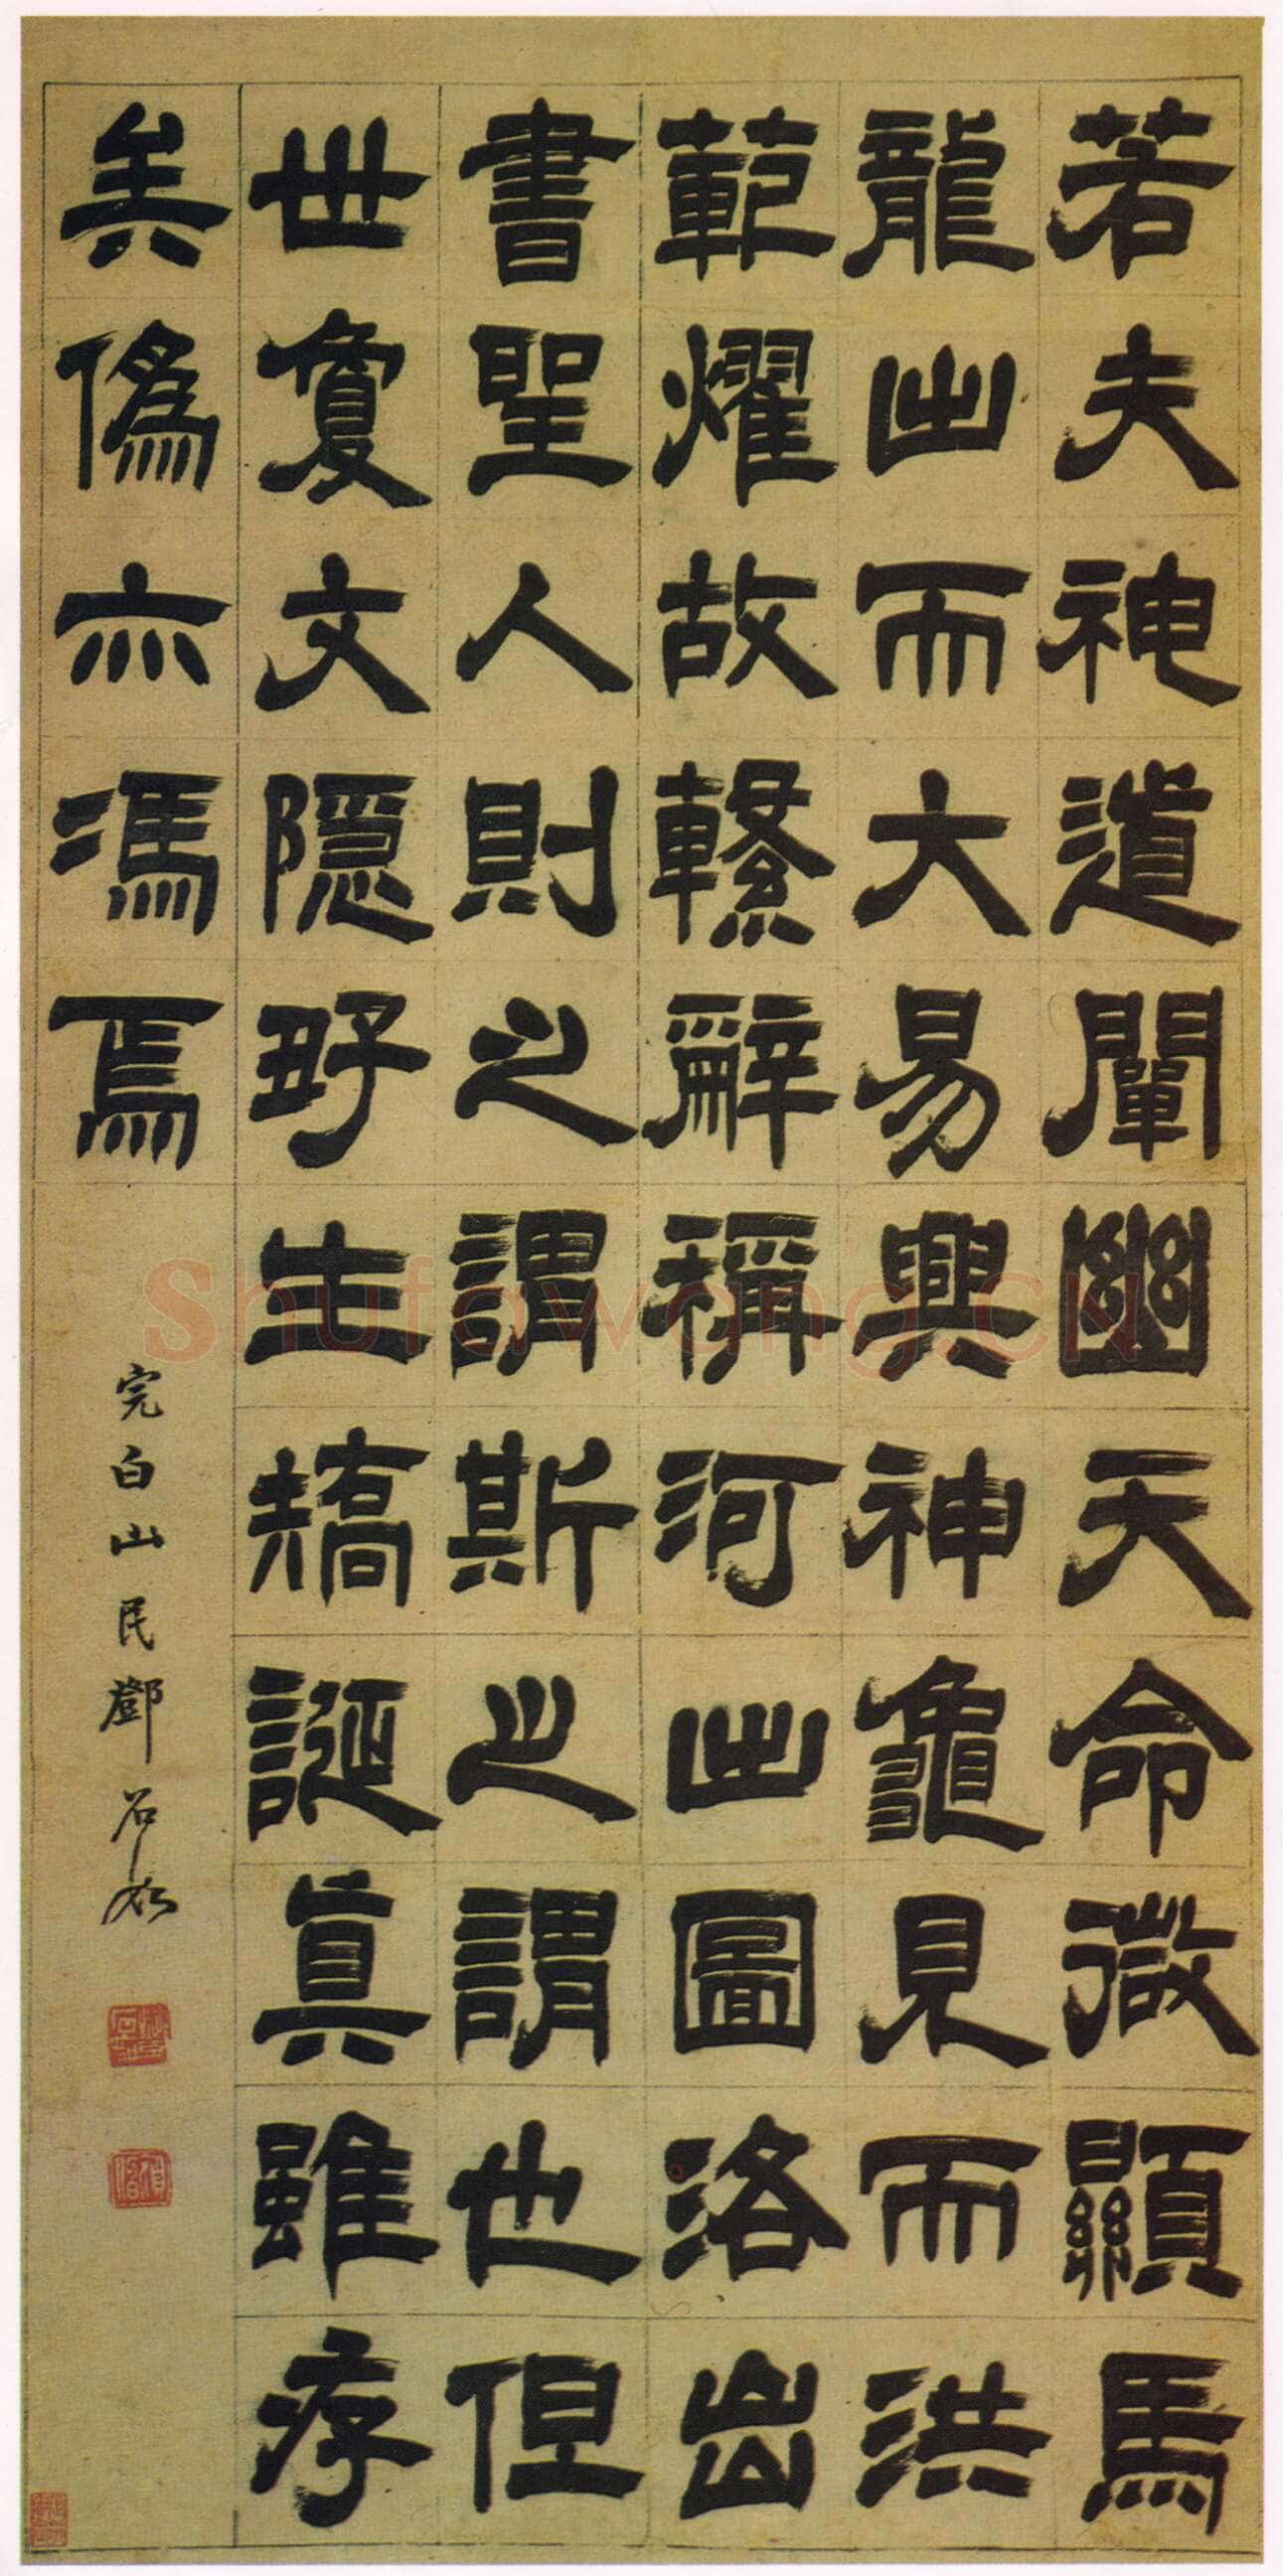 若夫神道闡幽天命微顯馬
龍出而大易興神龜見而洪
範燿故繫辭稱河出圖洛出
書聖人則之謂斯之謂也但
世敻文隱好生矯誕真雖存
矣偽亦馮焉
完白山民鄧石如
Shufawang.CN